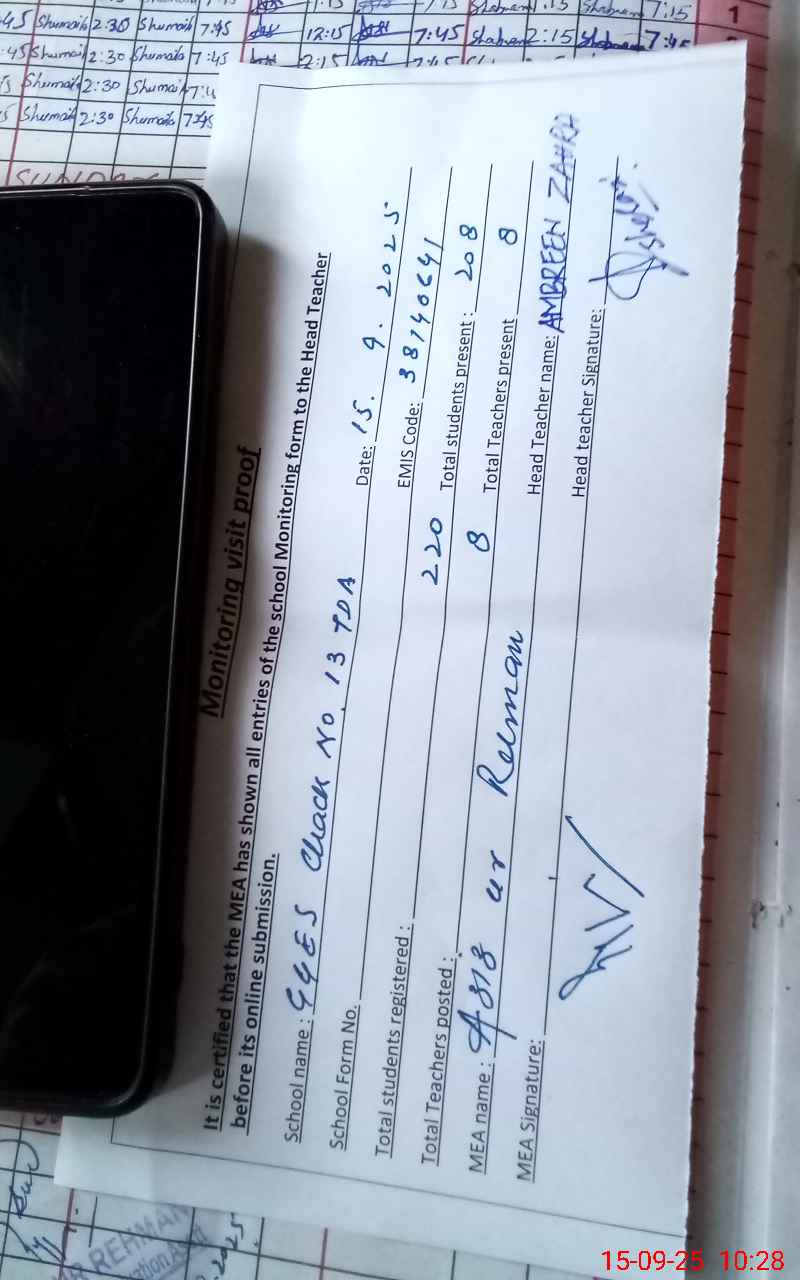 Monitoring visit proof
It is certified that the MEA has shown all entries of the school Monitoring form to the Head Teacher
before its online submission.
School name : GGES Chack No. 13 TDA Date: 15. 9. 2025
School Form No. EMIS Code: 38140641
Total students registered : 220 Total students present : 208
Total Teachers posted : 8 Total Teachers present 8
MEA name : ur Rehman Head Teacher name: AMBREEN ZAHRA
MEA Signature: Head teacher Signature:
7:15 Shabnam 7:15 1
:45 Shumaila 2:30 Shumaila 7:45 12:15 7:45 Shabnam 2:15 Shabnam 7:45
:45 Shumaila 2:30 Shumaila 7:45 2:15
Shumaila 2:30 Shumaila 7:4
Shumaila 2:30 Shumaila 7:45
SUNDAY
UR REHMAN
15-09-25 10:28